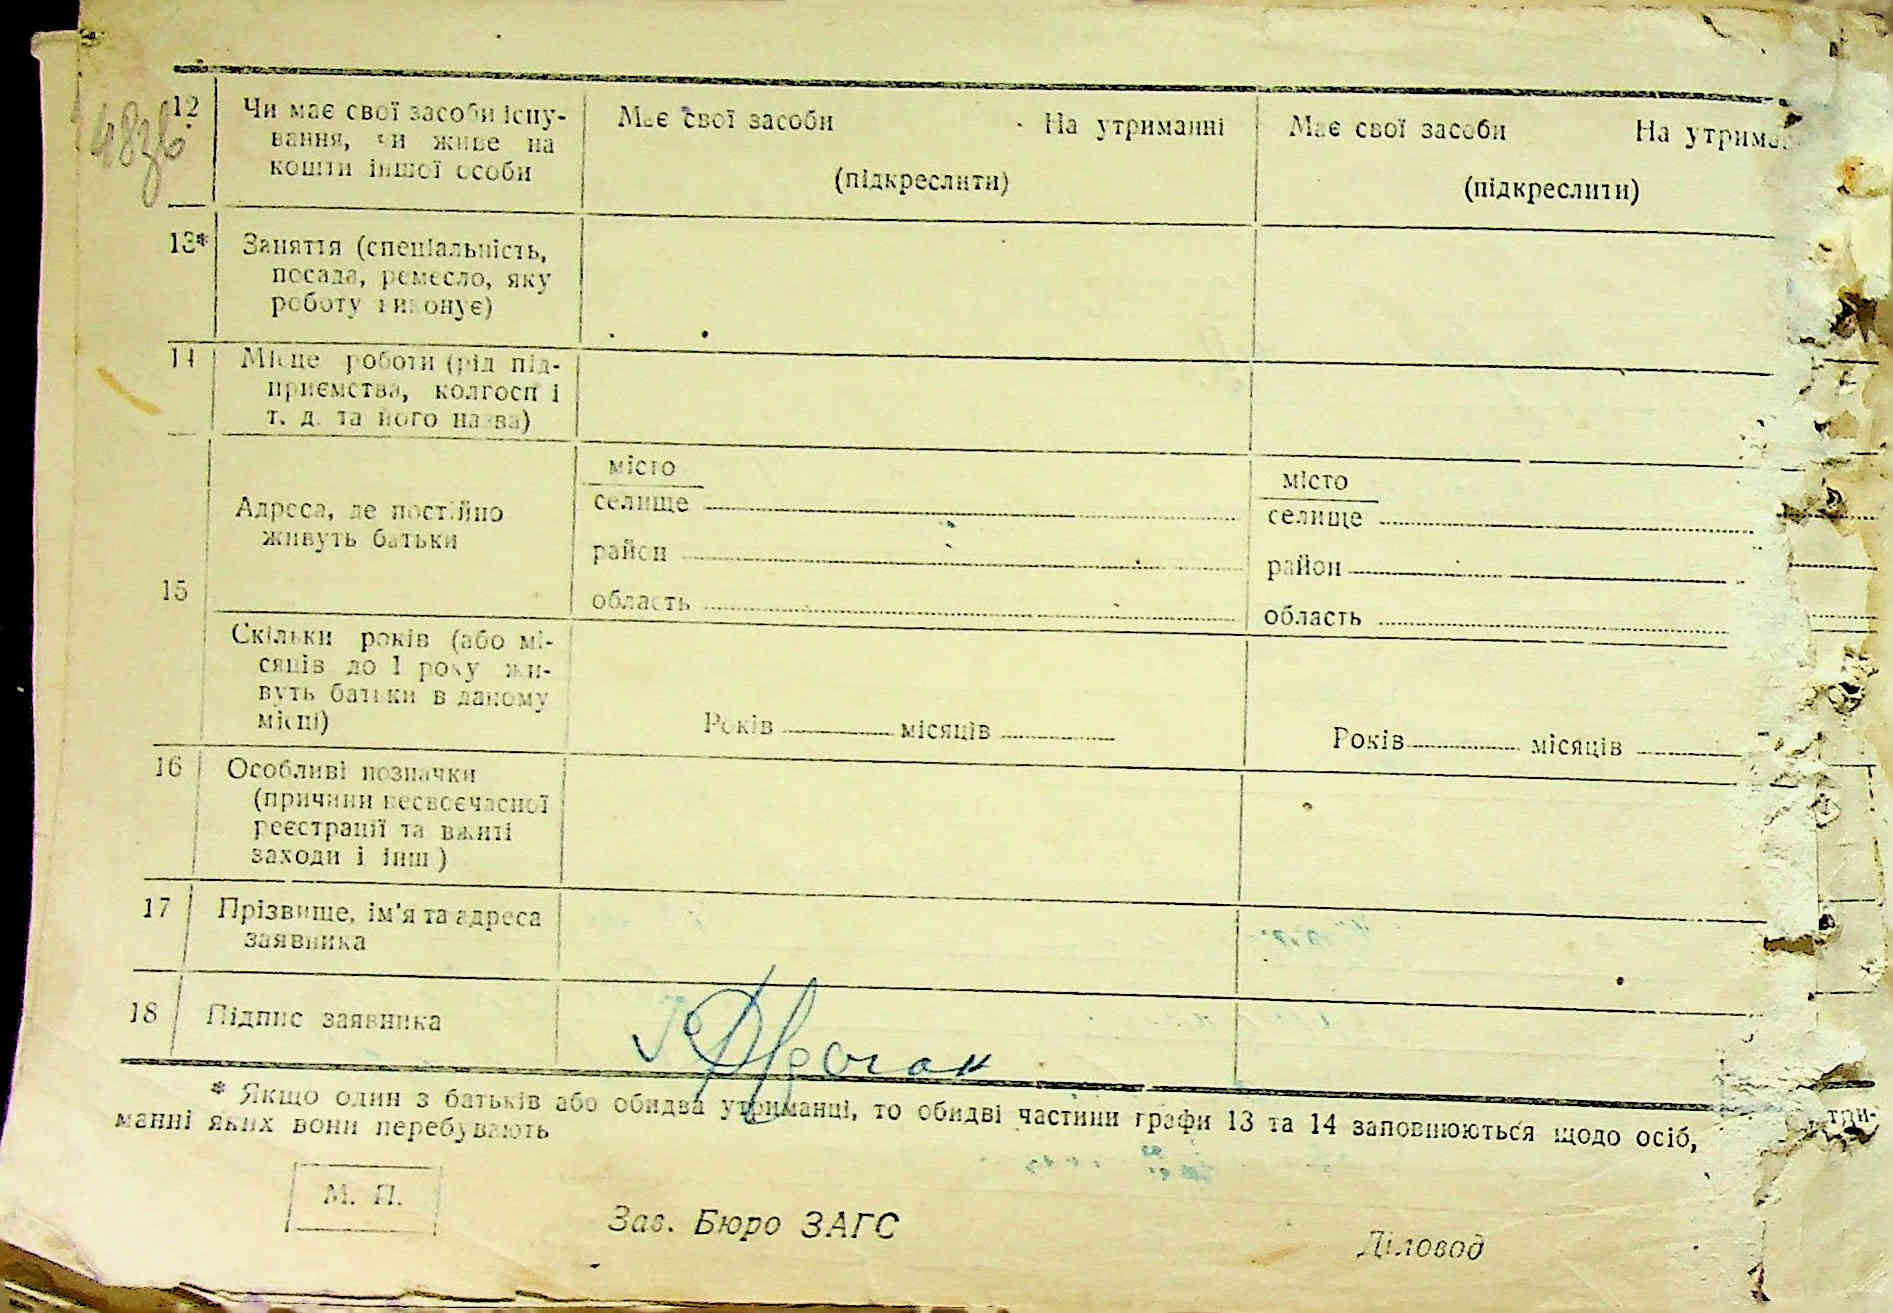 48зв
12
Чи має свої засоби існу-
вання, чи живе на
кошти іншої особи
Має свої засоби На утриманні
(підкреслити)
Має свої засоби На утрима
(підкреслити)
13*
Заняття (спеціальність,
посада, ремесло, яку
роботу виконує)
14
Місце роботи (рід під-
приємства, колгосп і
т. д. та його назва)
15
Адреса, де постійно
живуть батьки
місто
селище
район
область
місто
селище
район
область
Скільки років (або мі-
сяців до 1 року жи-
вуть батьки в даному
місці)
Років місяців
Років місяців
16
Особливі позначки
(причини несвоєчасної
реєстрації та вжиті
заходи і інш)
17
Прізвище, ім'я та адреса
заявника
18
Підпис заявника
* Якщо один з батьків або обидва утриманці, то обидві частини графи 13 та 14 заповнюються щодо осіб, три-
манні яких вони перебувають
М. П.
Зав. Бюро ЗАГС
Діловод